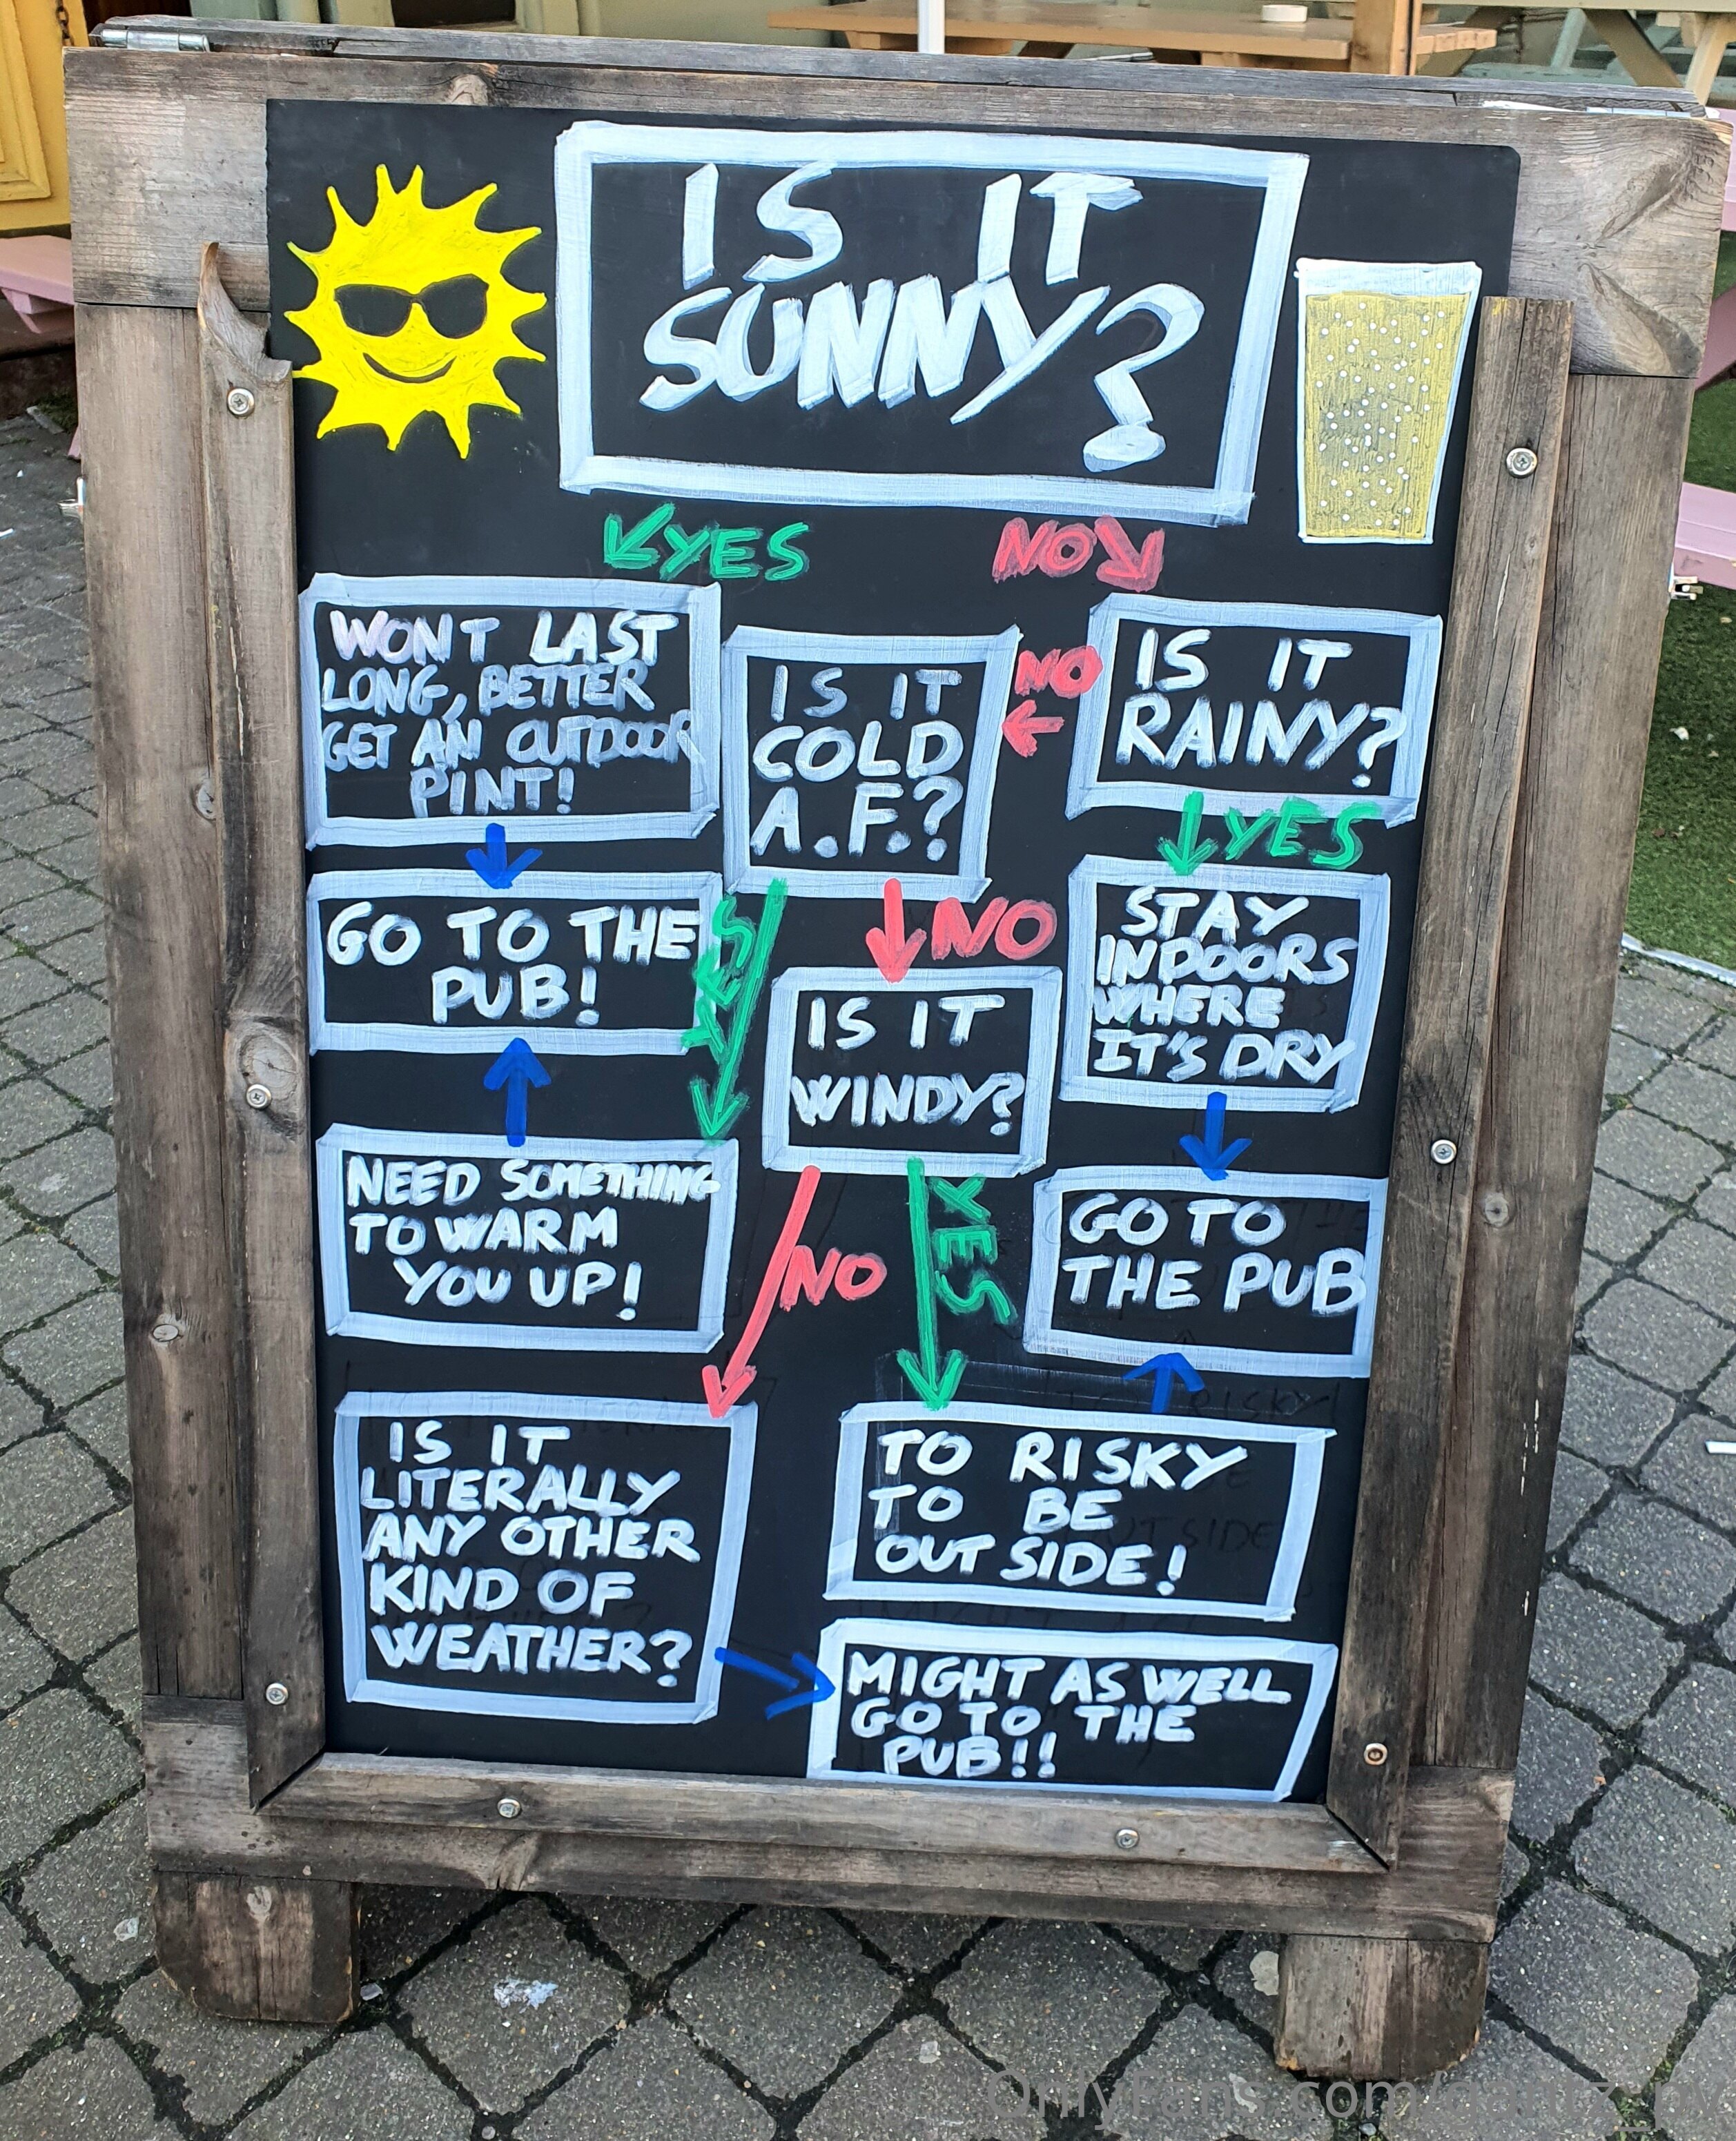 IS IT
SUNNY?
YES
NO
WONT LAST
LONG, BETTER
GET AN OUTDOOR
PINT!
IS IT
COLD
A.F.?
NO
IS IT
RAINY?
YES
GO TO THE
PUB!
YES
NO
STAY
INDOORS
WHERE
IT'S DRY
IS IT
WINDY?
NEED SOMETHING
TO WARM
YOU UP!
NO
YES
GO TO
THE PUB
IS IT
LITERALLY
ANY OTHER
KIND OF
WEATHER?
TO RISKY
TO BE
OUT SIDE!
MIGHT AS WELL
GO TO THE
PUB!!